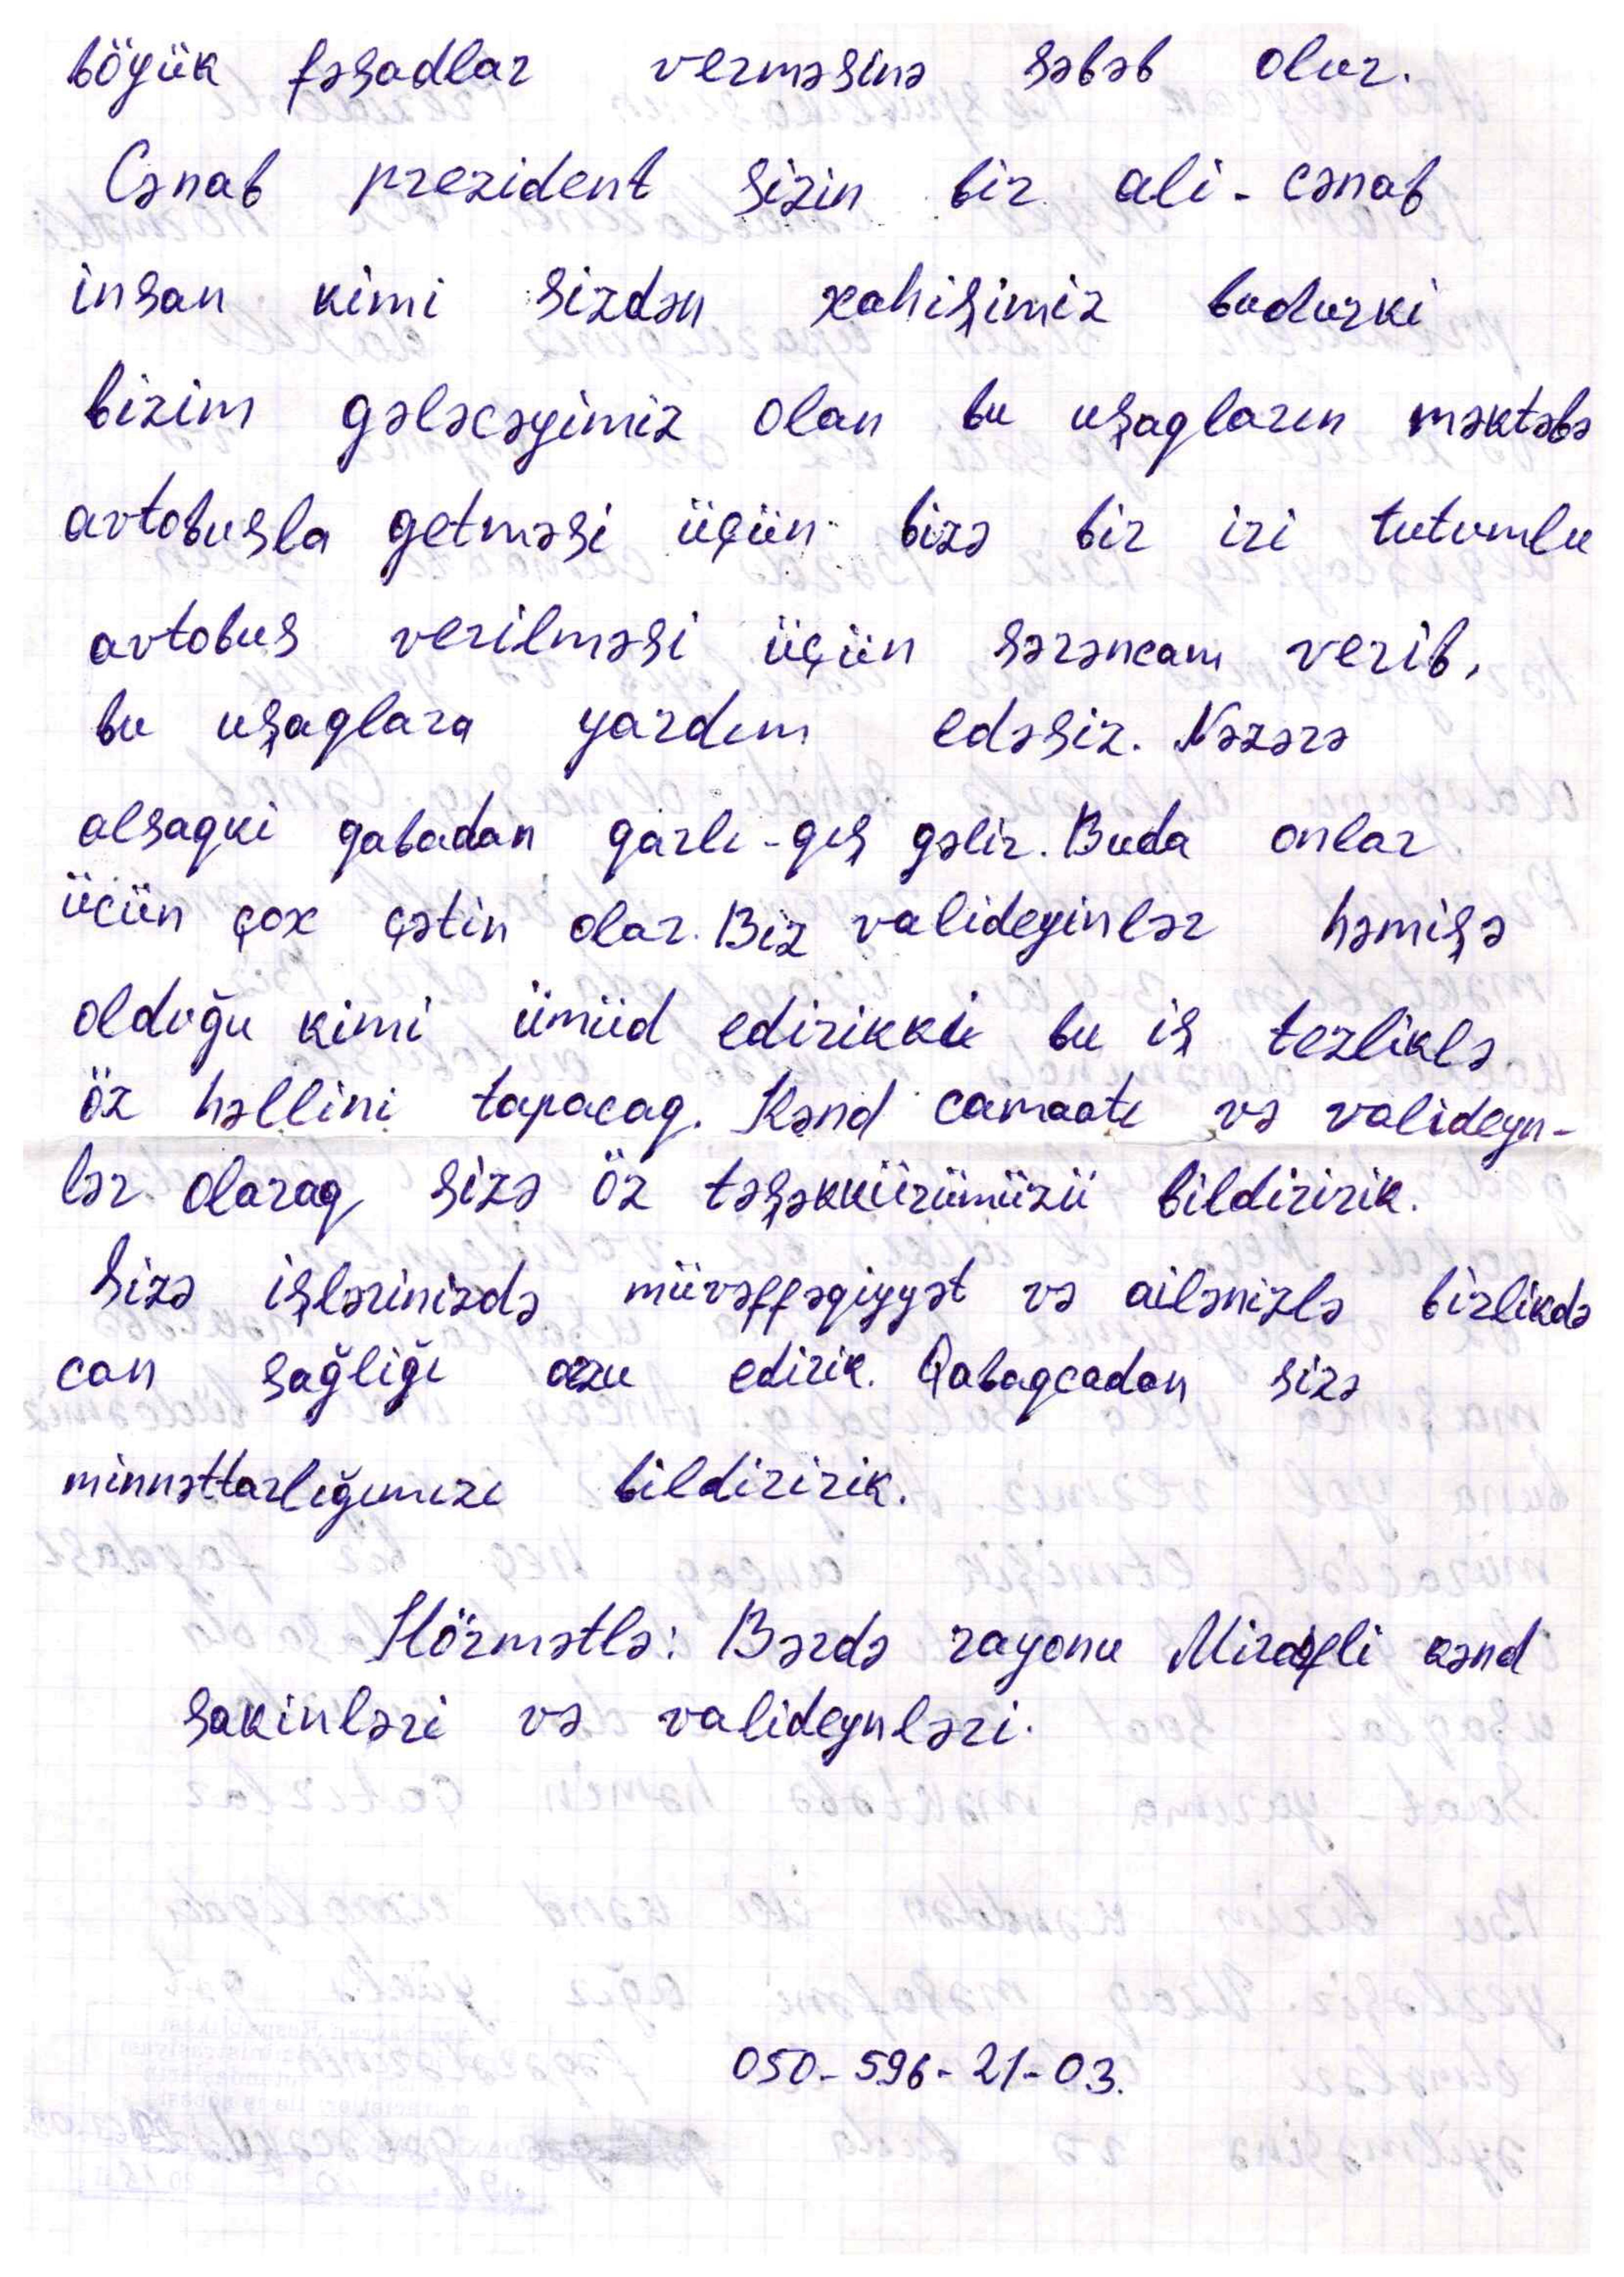 böyük fəsadlar verməsinə səbəb olur.
Cənab prezident sizin bir ali-cənab
insan kimi sizdən xahişimiz budurki
bizim gələcəyimiz olan bu uşagların məktəbə
avtobusla getməsi üçün bizə bir iri tutumlu
avtobus verilməsi üçün sərəncam verib,
bu uşaglara yardım edəsiz. Nəzərə
alsaqki qabadan qarlı-qış gəlir. Buda onlar
üçün çox çətin olar. Biz valideyinlər həmişə
olduğu kimi ümüd edirikki bu iş tezliklə
öz həllini tapacaq. Kənd camaatı və valideyn-
lər olaraq sizə öz təşəkkürümüzü bildiririk.
Sizə işlərinizdə müvəffəqiyyət və ailənizlə birlikdə
can sağlığı arzu edirik. Qabaqcadan sizə
minnəttarlığımızı bildiririk.
Hörmətlə: Bərdə rayonu kənd
sakinləri və valideynləri.
050-596-21-03.